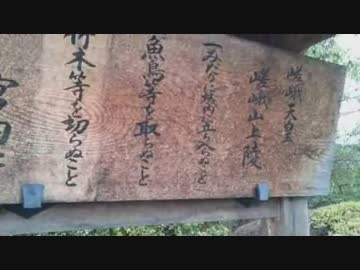 嵯峨天皇
嵯峨山上陵
一みだりに域内に立ち入らぬこと
魚鳥等を取らぬこと
竹木等を切らぬこと
宮内